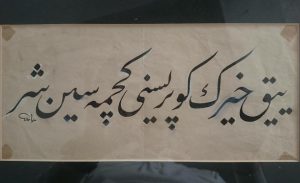 ییق خیرك كوپریسنی كچمه سین شر